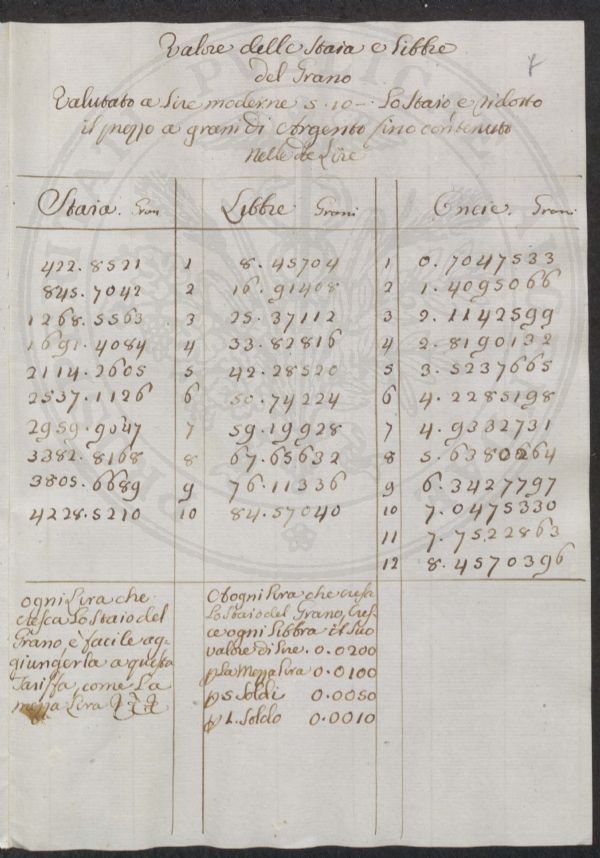 Valore delle Staia e Libbre
del Grano
Valutato a Lire moderne 5.10- Lo Staio e ridotto
il prezzo a grani di Argento fino contenuto
nelle dte Lire
7
Staia. Gran Libbre Grani Oncie. Grani
422.8521 1 8.45704 1 0.7047533
845.7042 2 16.91408 2 1.4095066
1268.5563 3 25.37112 3 2.1142599
1691.4084 4 33.82816 4 2.8190132
2114.2605 5 42.28520 5 3.5237665
2537.1126 6 50.74224 6 4.2285198
2959.9647 7 59.19928 7 4.9332731
3382.8168 8 67.65632 8 5.6380264
3805.6689 9 76.11336 9 6.3427797
4228.5210 10 84.57040 10 7.0475330
11 7.7522863
12 8.4570396
ogni Lira che
cresca Lo Staio del
Grano è facile ag-
giungerla a questa
Tariffa, come La
mezza Lira
Ad ogni Lira che cresca
Lo Staio del Grano, Cres
ce ogni Libbra il Suo
valore di Lire. 0.0200
p La Mezza Lira 0.0100
p 5. Soldi 0.0050
p 1. Soldo 0.0010